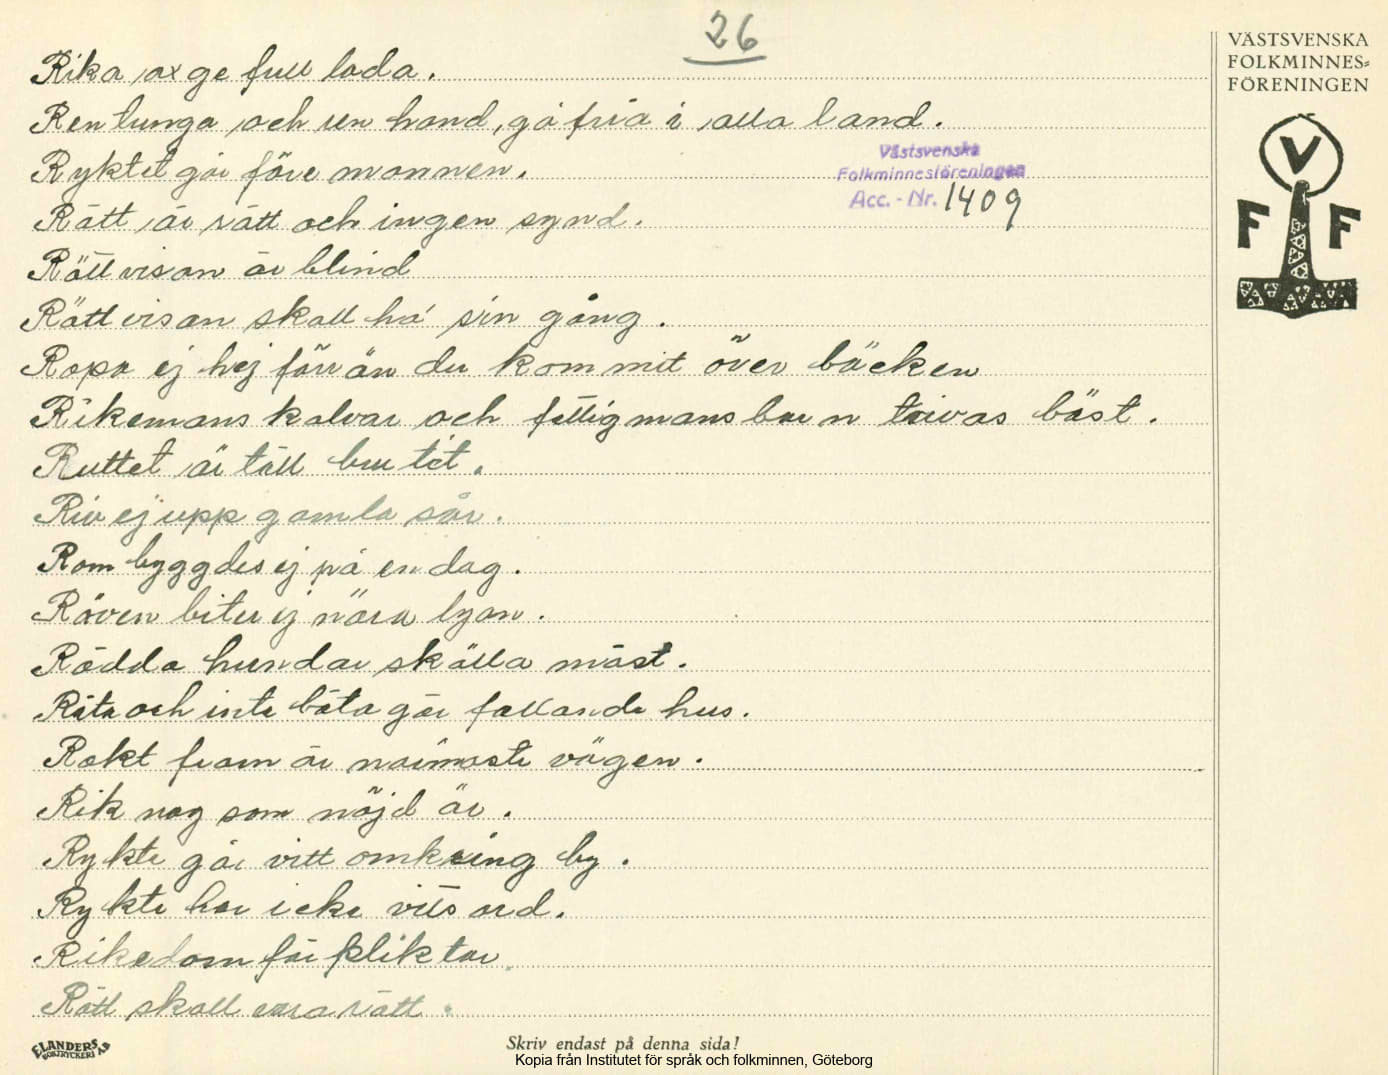 26
VÄSTSVENSKA
FOLKMINNES=
FÖRENINGEN
V
F F
Rika ax ge full lada.
Ren tunga och ren hand, gå fria i alla land.
Västsvenska
Folkminnesföreningen
Acc. - Nr. 1409
Ryktet går före mannen.
Rätt är rätt och ingen synd.
Rättvisan är blind
Rättvisan skall ha sin gång.
Ropa ej hej förrän du kommit över bäcken
Rikemans kalvar och fattigmans barn trivas bäst.
Ruttet är tätt brutet.
Riv ej upp gamla sår.
Rom byggdes ej på en dag.
Räven biter ej nära lyan.
Rädda hundar skälla mäst.
Råta och inte bäta gör fallande hus.
Rakt fram är närmaste vägen.
Rik nog som nöjd är.
Rykte går vitt omkring by.
Rykte har icke vitsord.
Rikedom för pliktar
Rätt skall vara rätt.
ELANDERS
BOKTRYCKERI AB
Skriv endast på denna sida!
Kopia från Institutet för språk och folkminnen, Göteborg